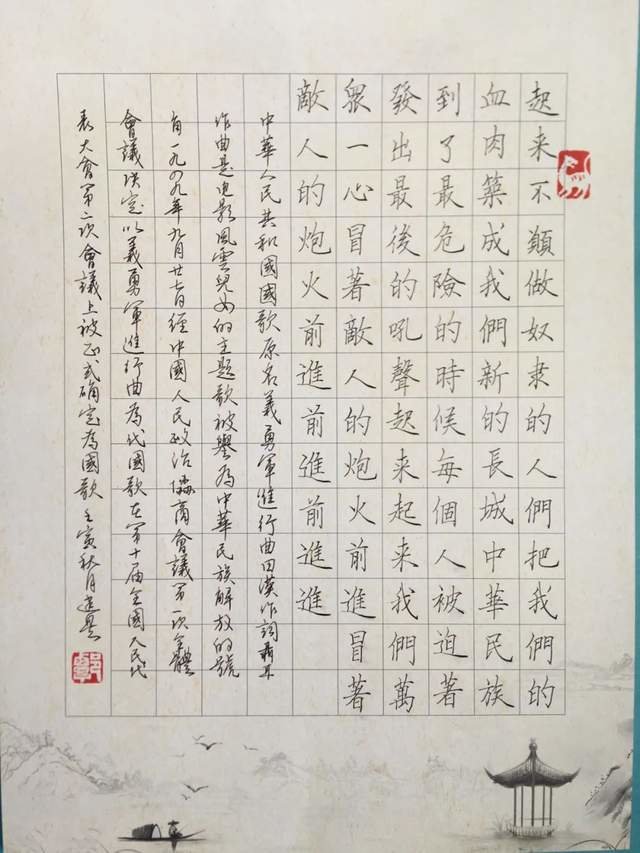 起来不願做奴隶的人們把我們的
血肉築成我們新的長城中華民族
到了最危險的時候每個人被迫著
發出最後的吼聲起来起来我們萬
眾一心冒著敵人的炮火前進冒著
敵人的炮火前進前進前進進
中華人民共和國國歌原名義勇軍進行曲田漢作詞聶耳
作曲是电影風雲兒女的主题歌被譽為中華民族解放的號
角一九四九年九月廿七日經中國人民政治協商會議第一次全體
會議决定以義勇軍進行曲為代國歌在第十届全國人民代
表大會第二次會議上被正式确定為國歌 壬寅秋月